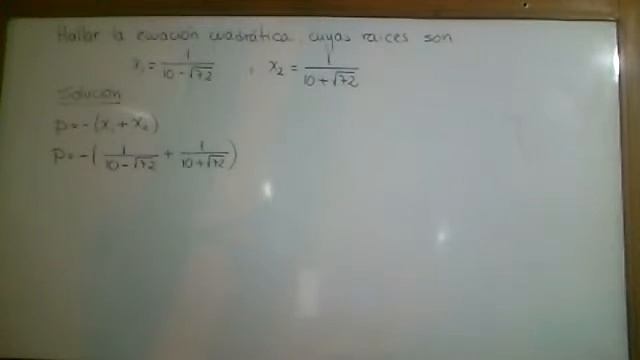 Hallar la ecuación cuadrática, cuyas raíces son
x₁ = 1/(10 - √72) , x₂ = 1/(10 + √72)
Solución
p = -(x₁ + x₂)
p = -( 1/(10 - √72) + 1/(10 + √72) )